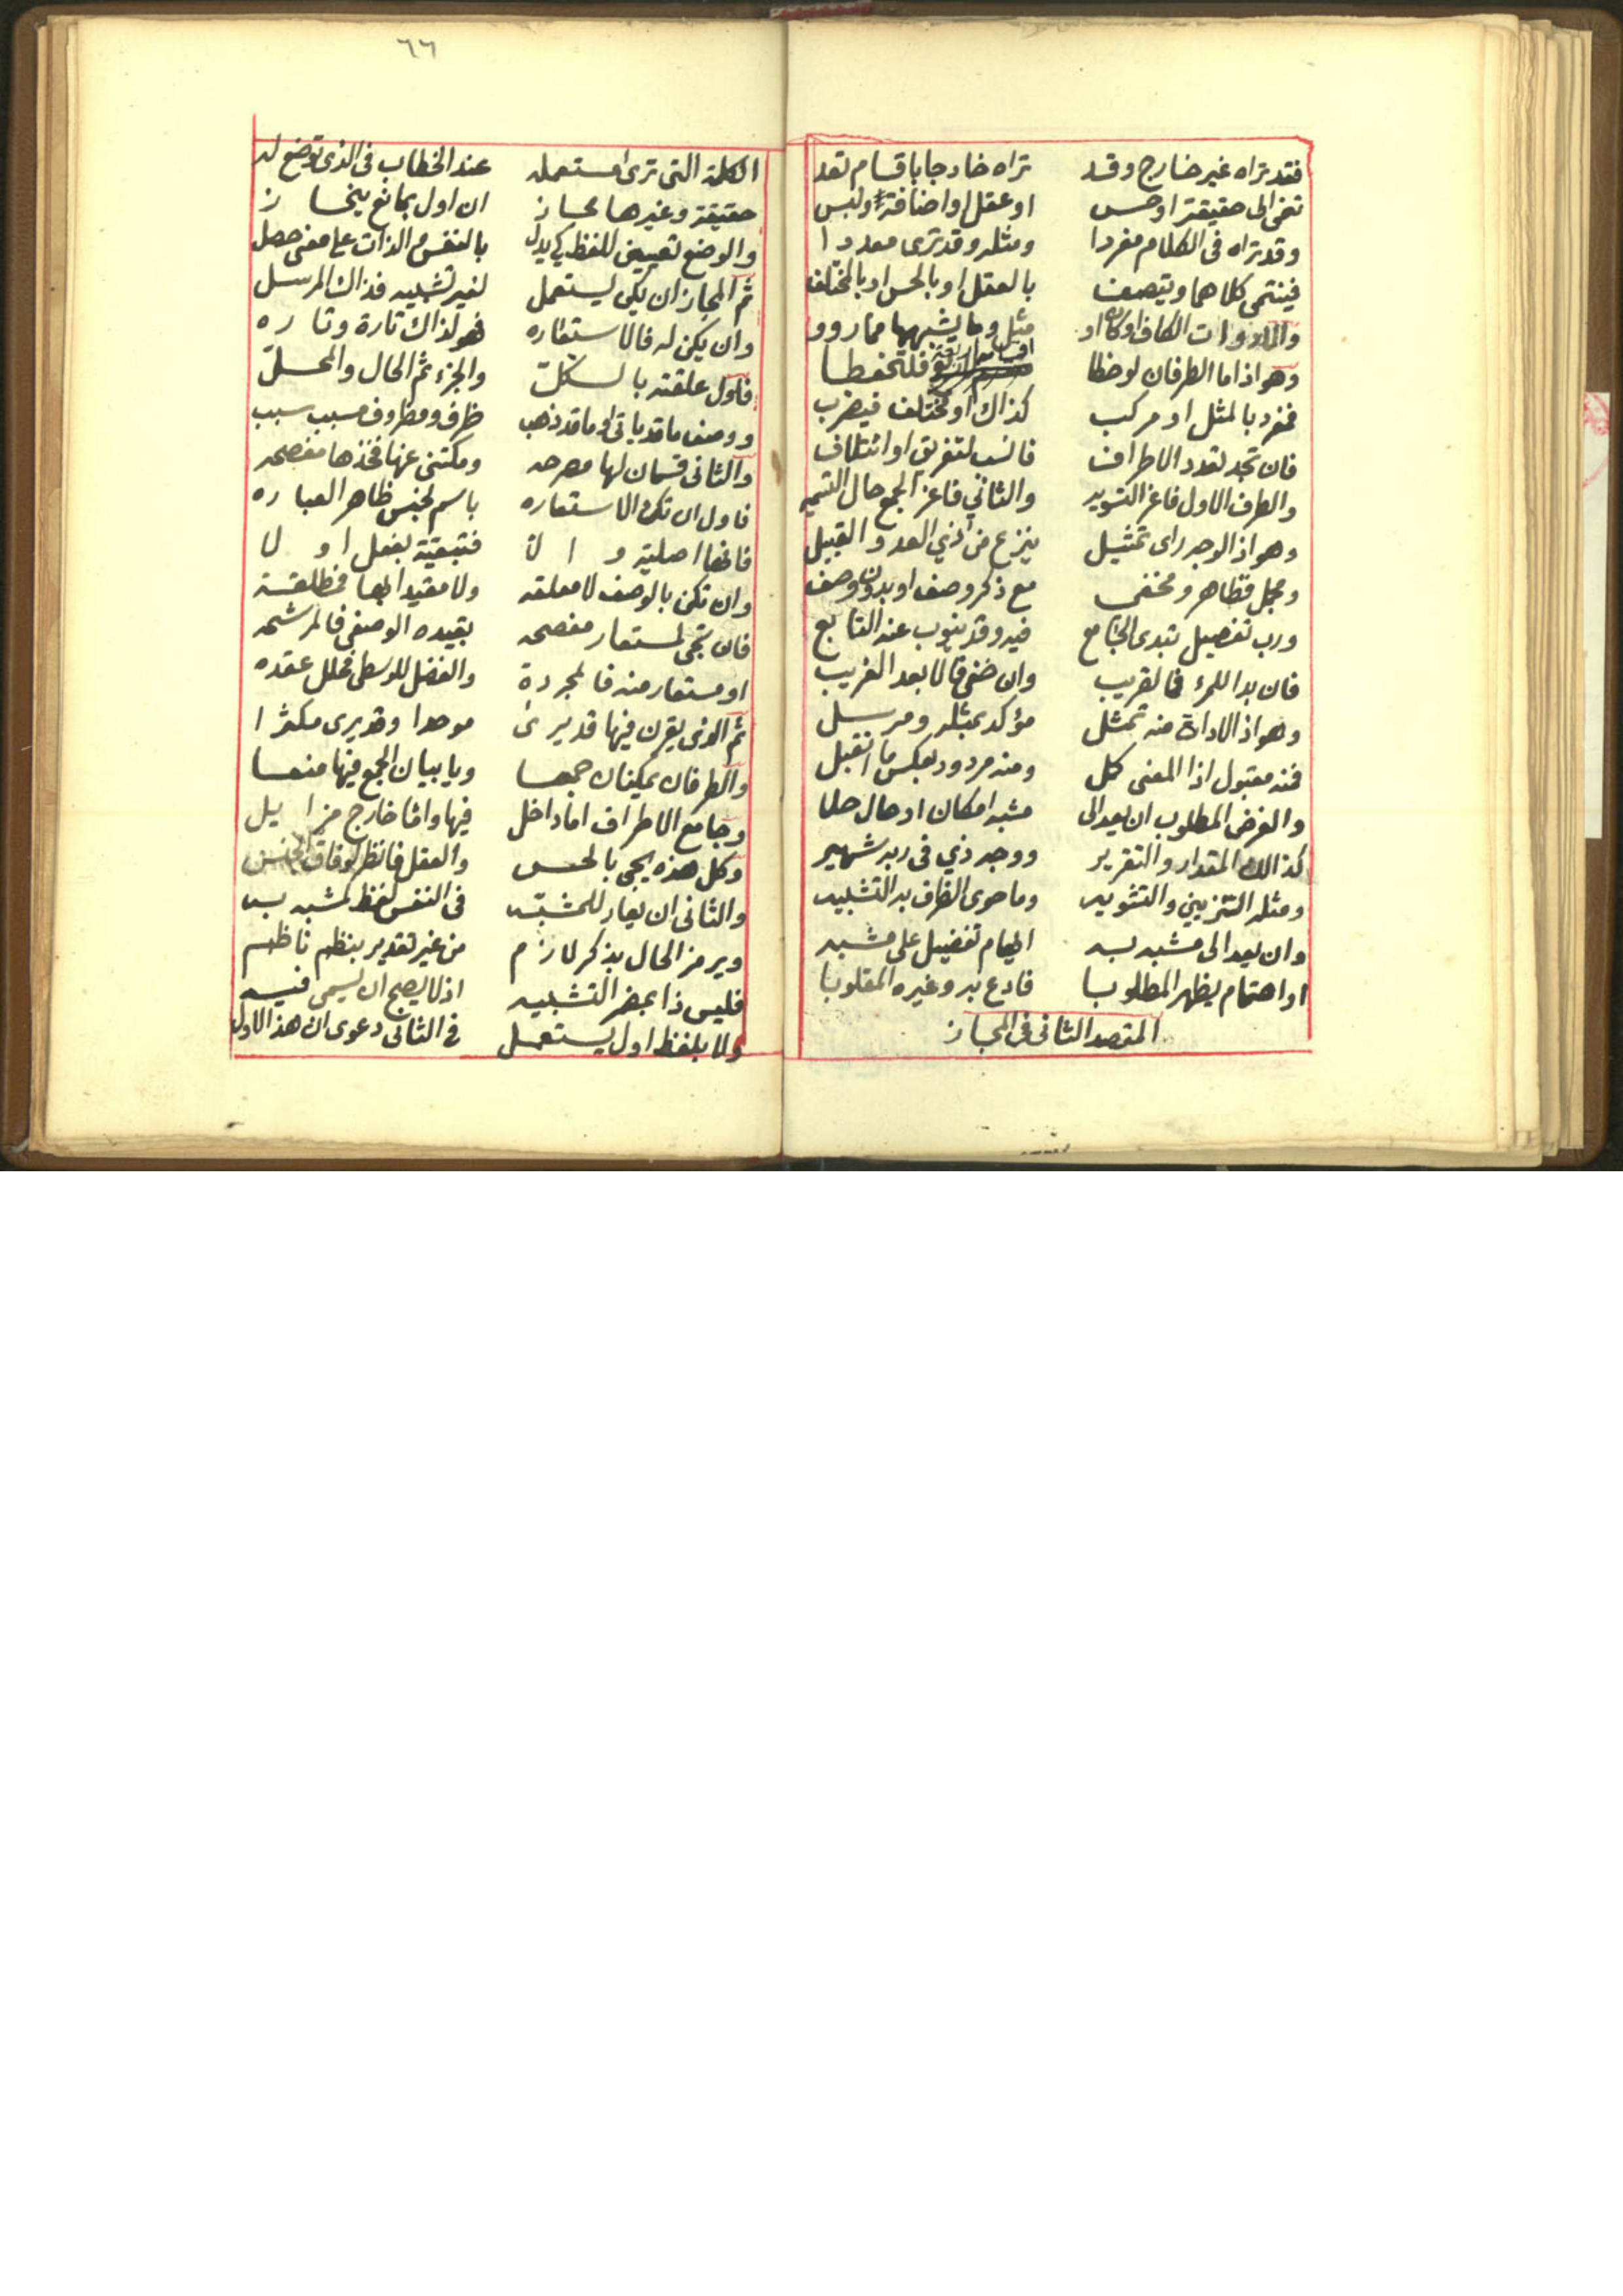 ٦٦
فقد تراه غير خارج وقد تراه خارجا باقسام تعد
تغى الى حقيقة او حس او عقل او اضافة ولبس
وقد تراه فى الكلام مفردا ومثله وقد ترى معددا
فينتمى كلاهما ويتصف بالعقل او بالحس او بالمختلف
والادوات الكاف او كان او مثل وما يشبهها مما رووا
وهو اذا ما الطرفان لوحظا فلتحفظا
فمفرد بالمثل او مركب كذاك او مختلف فيضرب
فان تجد تعدد الاطراف فانسب لتفريق او ائتلاف
والطرف الاول فاعز التسويه والثاني فاعز الجمع حال التسميه
وهو اذا الوجه راى تمثيل ينزع من ذي العد والقبيل
ومجمل فظاهر ومخفى مع ذكر وصف او بدون وصف
ورب تفصيل بتدى الجامع فيه وقد ينوب عنه التابع
فان بدا للمرء فالقريب وان خفى فالابعد الغريب
وهو اذا الاداة منه تمثل مؤكد بمثله ومرسل
فمنه مقبول اذا المعنى كمل ومنه مردود بعكس ما انقبل
والغرض المطلوب ان يعد الى مشبه امكان او حال حلا
كذلك المقدار والتقرير ووجه ذي فى ربه شهير
ومثله التزيين والتشويه وما حوى الظراف به التشبيه
وان يعد الى مشبه به ايهام تفضيل على مشبه
او اهتمام يظهر المطلوبا فادع به وغيره المقلوبا
المقصد الثانى فى المجاز
الكلمة التى ترى مستعمله عند الخطاب فى الذى توضع له
حقيقة وغيرها مجاز ان اول بمانع ينحاز
والوضع تعيين للفظ كي يدل بالنفس الذات على معنى حصل
ثم المجاز ان يكن يستعمل لغير تشبيه فذاك المرسل
وان يكن له فالاستعاره فهو لذاك تارة وتاره
فاول علقته بالكل والجزء ثم الحال والمحل
ووصف ما قد ياتى او ما قد ذهب ظرف ومظروف مسبب سبب
والثانى قسمان لها مصرحه ومكتنى عنها فخذها مفصحه
فاول ان تكن الاستعاره باسم لجنس ظاهر العباره
فانها اصلية والا فتبعية بفعل اولا
وان تكن بالوصف لا معلقه ولا مقيدا بها فمطلقة
فان تجى لمستعار مفصحه بقيده الوصفى فالمرشحه
او مستعار منه فالمجردة والفضل للوسطى فحلل عقده
ثم الذى يقرن فيها قد يرى موحدا وقد يرى مكثرا
والطرفان يمكنان جمعا ويابيان الجمع فيها منعا
وجامع الاطراف اما داخل فيها واما خارج مزايل
وكل هذه يجى بالحس والعقل فانظر لوفاق الجنس
والثانى ان يعار للمشبه فى النفس لفظ مشبه به
ويرمز الحال بذكر لازم من غير تقدير بنظم ناظم
فليس ذا بمضمر التشبيه اذ لا يصح ان يسمى فيه
ولا بلفظ اول يستعمل فى الثانى دعوى ان هذا الاول